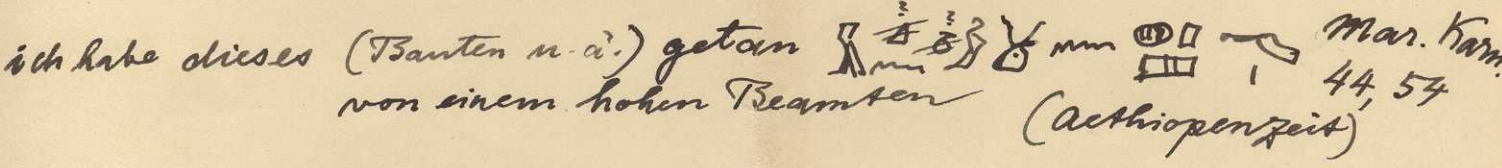 ich habe dieses (Bauten u. ä.) getan Mar. Karn.
von einem hohen Beamten 44, 54
(Aethiopenzeit)